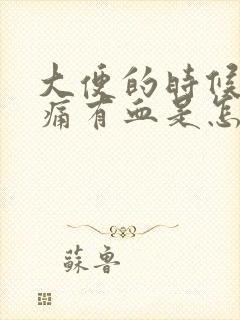 大便的時候
痛有血是怎
蘇魯